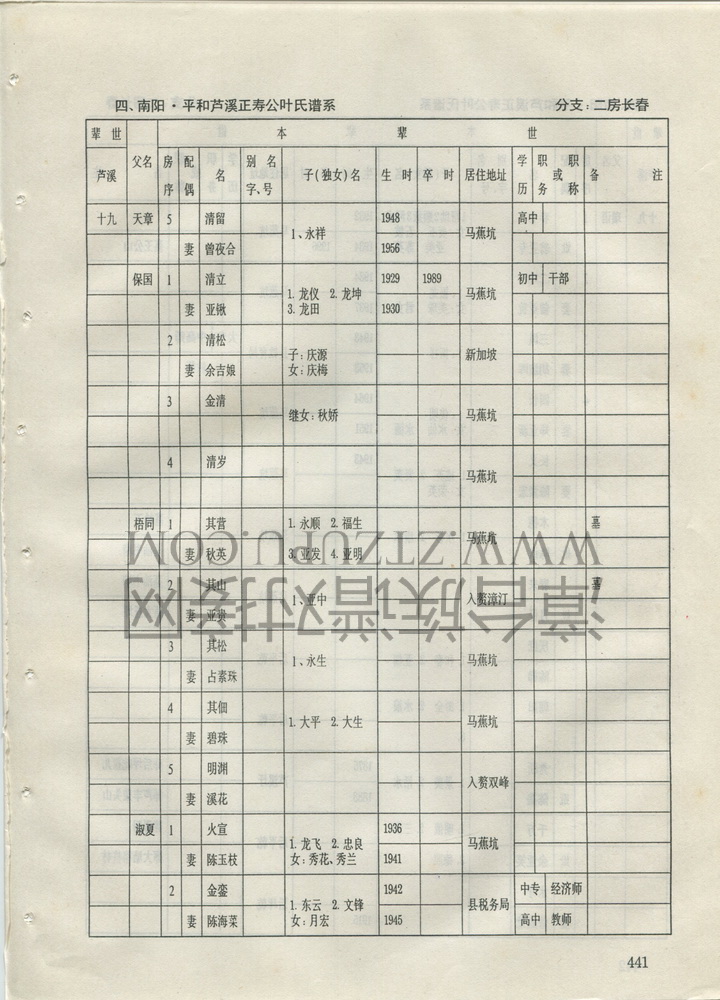 四、南阳·平和芦溪正寿公叶氏谱系 分支：二房长春
辈世 父名 本辈世
芦溪 房序 配偶 名 别名字、号 子(独女)名 生时 卒时 居住地址 学历 职务或职称 备注
十九 天章 5 清留 1、永祥 1948 马蕉坑 高中
妻 曾夜合 1956
保国 1 清立 1. 龙仪 2. 龙坤 3. 龙田 1929 1989 马蕉坑 初中 干部
妻 亚锹 1930
2 清松 子：庆源 女：庆梅 新加坡
妻 余吉娘
3 金清 继女：秋娇 马蕉坑
4 清岁 马蕉坑
梧同 1 其营 1. 永顺 2. 福生 马蕉坑 墓
妻 秋英 3. 亚发 4. 亚明
2 其山 1、亚中 入赘漳汀 墓
妻 亚贵
3 其松 1、永生 马蕉坑
妻 占素珠
4 其佃 1. 大平 2. 大生 马蕉坑
妻 碧珠
5 明渊 入赘双峰
妻 溪花
淑夏 1 火宣 1. 龙飞 2. 忠良 女：秀花、秀兰 1936 马蕉坑
妻 陈玉枝 1941
2 金銮 1. 东云 2. 文锋 女：月宏 1942 县税务局 中专 经济师
妻 陈海菜 1945 高中 教师
441
WWW.ZTZUPU.COM
漳台族谱对接网